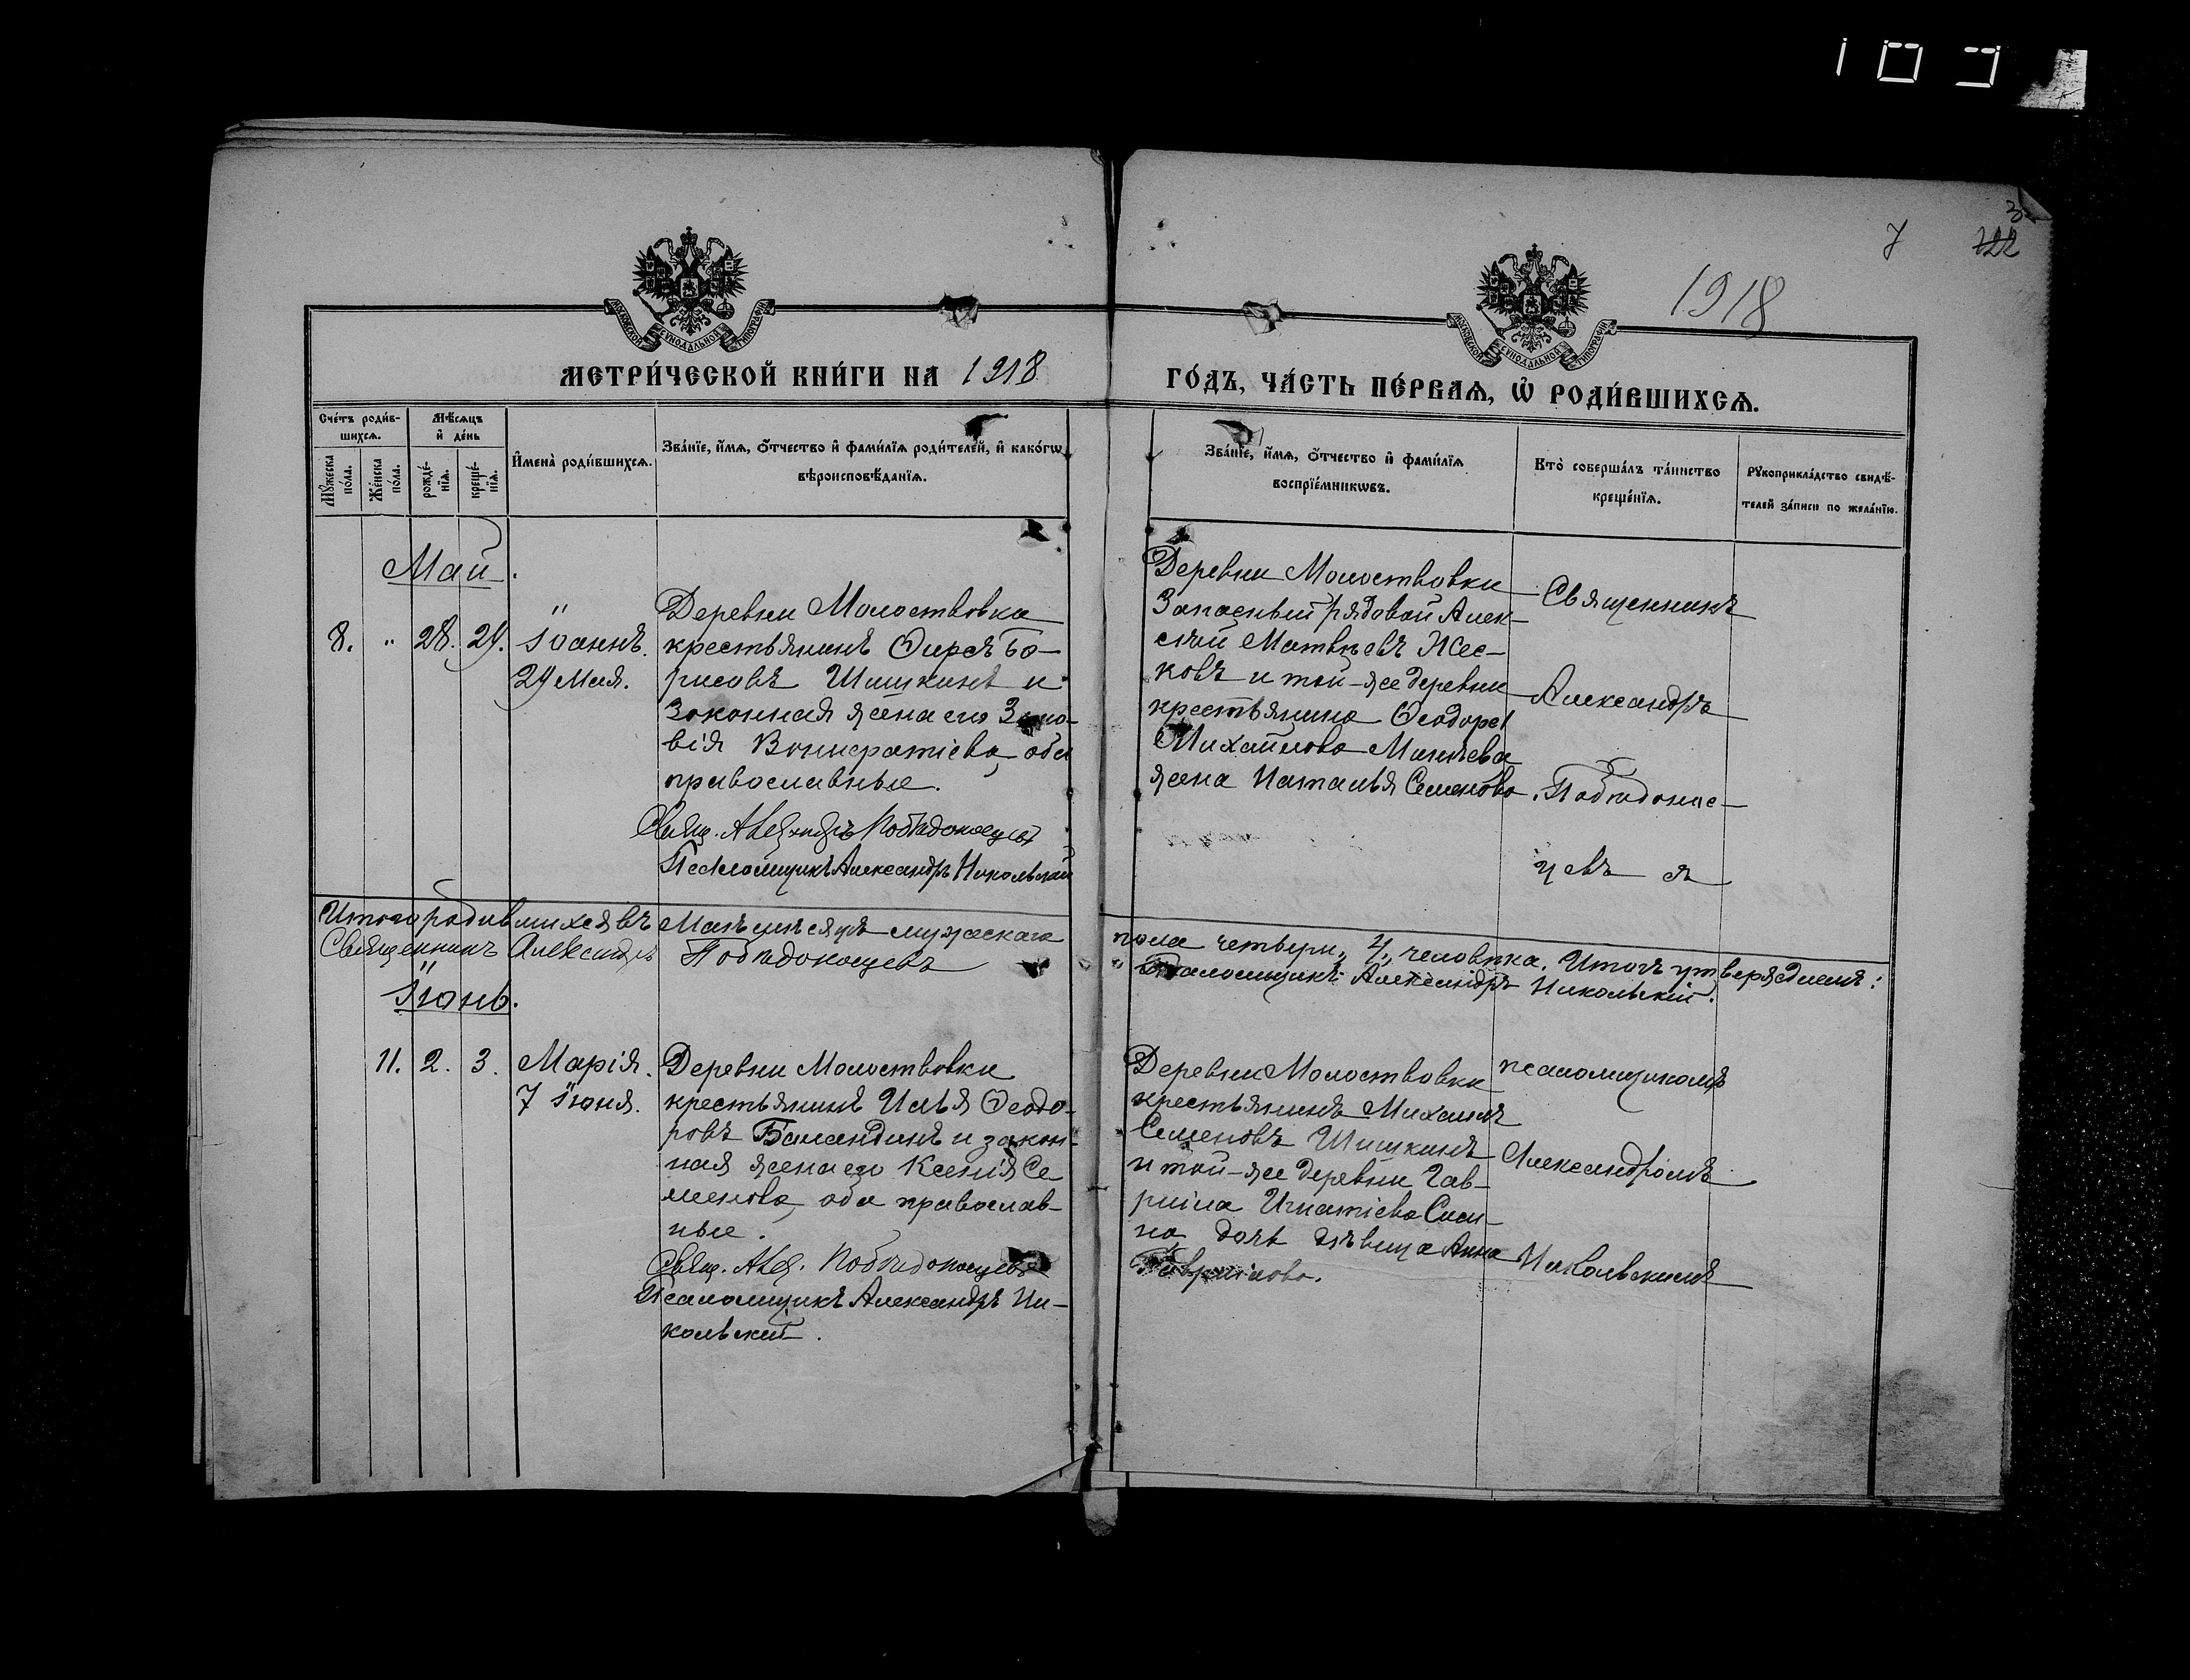 109
7
3
122
1918
МОСКОВСКОЙ СѴНОДАЛЬНОЙ ТИПОГРАФІИ
МОСКОВСКОЙ СѴНОДАЛЬНОЙ ТИПОГРАФІИ
МЕТРИ́ЧЕСКОЙ КНИ́ГИ НА 1918
ГО́ДЪ, ЧА́СТЬ ПЕ́РВАѦ, Ѡ҆ РОДИ́ВШИХСѦ.
Сче́тъ роди́в-
шихсѧ.
Мѣ́сѧцъ
и҆ де́нь
Мꙋ́жеска
по́ла.
Же́нска
по́ла.
рожде́-
нїѧ.
креще́-
нїѧ.
И҆мена̀ роди́вшихсѧ.
Зва́нїе, и҆́мѧ, ѻ҆́тчество и҆ фами́лїѧ роди́телей, и҆ како́гѡ
вѣроисповѣ́данїѧ.
Зва́нїе, и҆́мѧ, ѻ҆́тчество и҆ фами́лїѧ
воспрїе́мникѡвъ.
Кто̀ соверша́лъ та́инство
креще́нїѧ.
Рꙋкоприкла́дство свидѣ́-
телей за́писи по жела́нїю.
Май.
8. „ 28. 29. Іоаннъ.
29 Мая.
Деревни Молоствовка
крестьянинъ Ѳирсъ Бо-
рисовъ Шишкинъ и
законная жена его Зино-
вія Вонифатіева, оба
православные.
Свящ. Александръ Побѣдоносцевъ
Псаломщикъ Александръ Никольскій
Деревни Молоствовки
Запасный рядовой Алек-
сѣй Матвѣевъ
и той-же деревни
крестьянина Ѳеодора
Михайлова Минѣева
жена Наталья Семенова.
Священникъ
Александръ
Побѣдонос-
цевъ съ
Итого родившихся въ Маѣ мѣсяцѣ мужескаго
пола четвери „4„ человѣка. Итогъ утверждаемъ:
Священникъ Александръ Побѣдоносцевъ
Псаломщикъ Александръ Никольскій.
Іюнь.
11. 2. 3. Марія.
7 Іюня.
Деревни Молоствовки
крестьянинъ Илья Ѳеодо-
ровъ Баландинъ и закон-
ная жена его Ксенія Се
менова, оба православ-
ные.
Свящ. Алек. Побѣдоносцевъ
Псаломщикъ Александръ Ни-
кольскій.
Деревни Молоствовки
крестьянинъ Михаилъ
Семеновъ Шишкинъ
и той-же деревни Гав-
ріила Игнатіева
дочь дѣвица Анна
Гавріилова.
псаломщикомъ
Александромъ
Никольскимъ